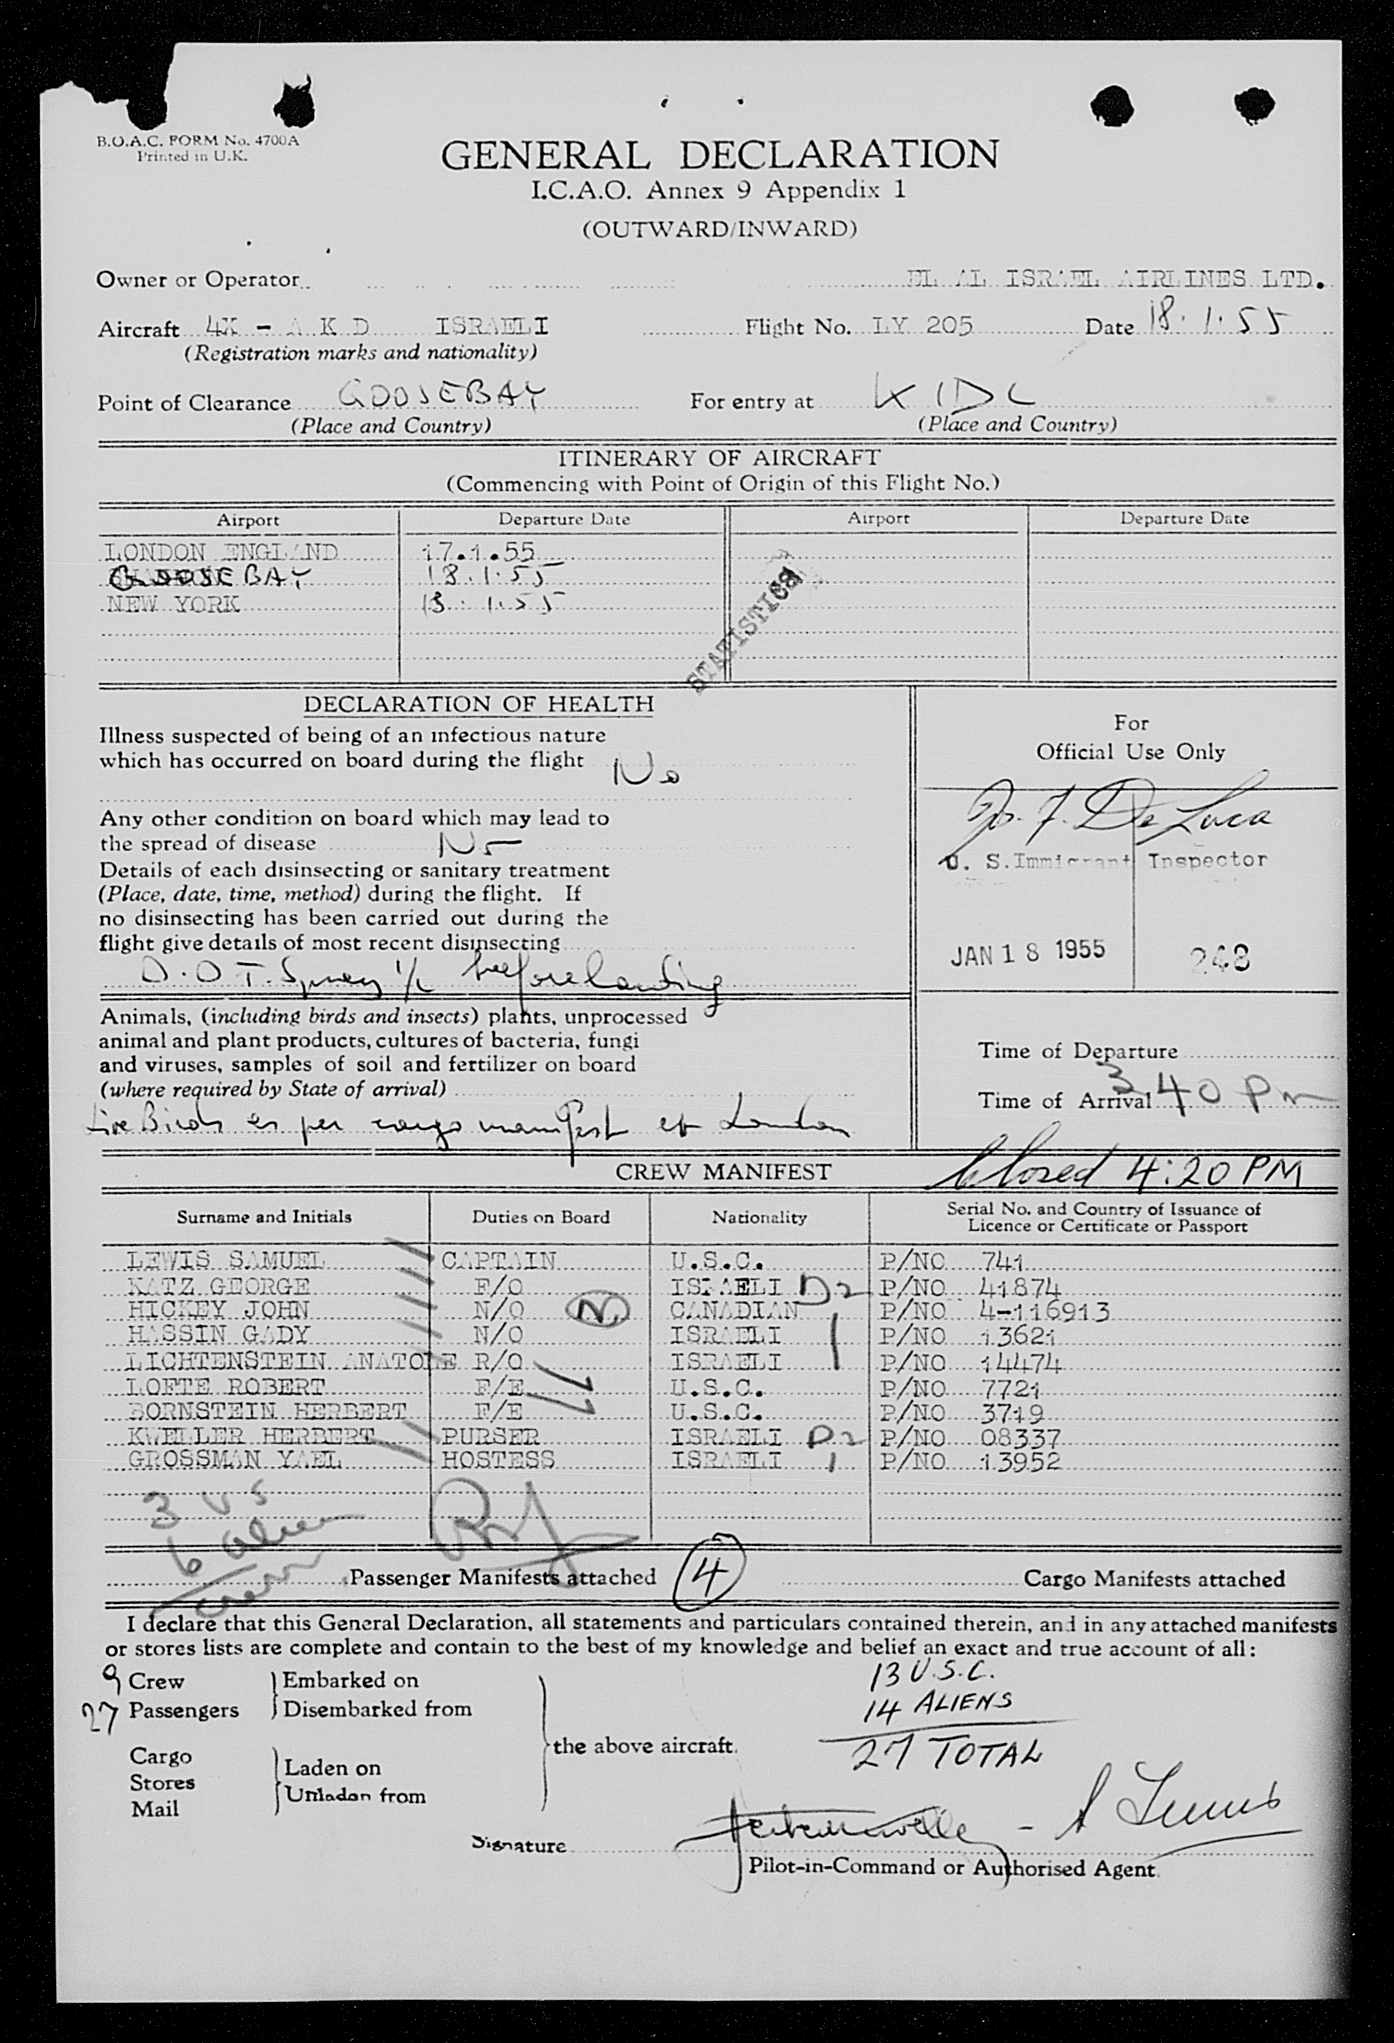 B.O.A.C. FORM No. 4700A
Printed in U.K.
GENERAL DECLARATION
I.C.A.O. Annex 9 Appendix 1
(OUTWARD/INWARD)
Owner or Operator EL AL ISRAEL AIRLINES LTD.
Aircraft 4X - A K D ISRAELI Flight No. LY 205 Date 18.1.55
(Registration marks and nationality)
Point of Clearance GOOSEBAY For entry at KIDL
(Place and Country) (Place and Country)
ITINERARY OF AIRCRAFT
(Commencing with Point of Origin of this Flight No.)
Airport Departure Date Airport Departure Date
LONDON ENGLAND 17.1.55
GOOSEBAY 18.1.55
NEW YORK 18.1.55
STATISTICS
DECLARATION OF HEALTH
Illness suspected of being of an infectious nature
which has occurred on board during the flight No
Any other condition on board which may lead to
the spread of disease No
Details of each disinsecting or sanitary treatment
(Place, date, time, method) during the flight. If
no disinsecting has been carried out during the
flight give details of most recent disinsecting
D.D.T. Spray before landing
Animals, (including birds and insects) plants, unprocessed
animal and plant products, cultures of bacteria, fungi
and viruses, samples of soil and fertilizer on board
(where required by State of arrival)
Live Birds as per cargo manifest ex London
For
Official Use Only
Jo. F. De Luca
U. S. Immigrant Inspector
JAN 18 1955 248
Time of Departure
Time of Arrival 3 40 Pm
CREW MANIFEST Closed 4:20 PM
Surname and Initials Duties on Board Nationality Serial No. and Country of Issuance of
Licence or Certificate or Passport
LEWIS SAMUEL CAPTAIN U.S.C. P/NO 741
KATZ GEORGE F/O ISRAELI D2 P/NO 41874
HICKEY JOHN N/O CANADIAN P/NO 4-116913
HASSIN GADY N/O ISRAELI P/NO 13621
LICHTENSTEIN ANATOLE R/O ISRAELI P/NO 14474
LOFTE ROBERT F/E U.S.C. P/NO 7721
BORNSTEIN HERBERT F/E U.S.C. P/NO 3719
KWELLER HERBERT PURSER ISRAELI D2 P/NO 08337
GROSSMAN YAEL HOSTESS ISRAELI P/NO 13952
3 US
6 Alien
Crew
Passenger Manifests attached 4 Cargo Manifests attached
I declare that this General Declaration, all statements and particulars contained therein, and in any attached manifests
or stores lists are complete and contain to the best of my knowledge and belief an exact and true account of all:
9 Crew Embarked on
27 Passengers Disembarked from
the above aircraft.
Cargo
Stores
Mail
Laden on
Unladen from
13 U.S.C.
14 ALIENS
27 TOTAL
Signature
Pilot-in-Command or Authorised Agent.